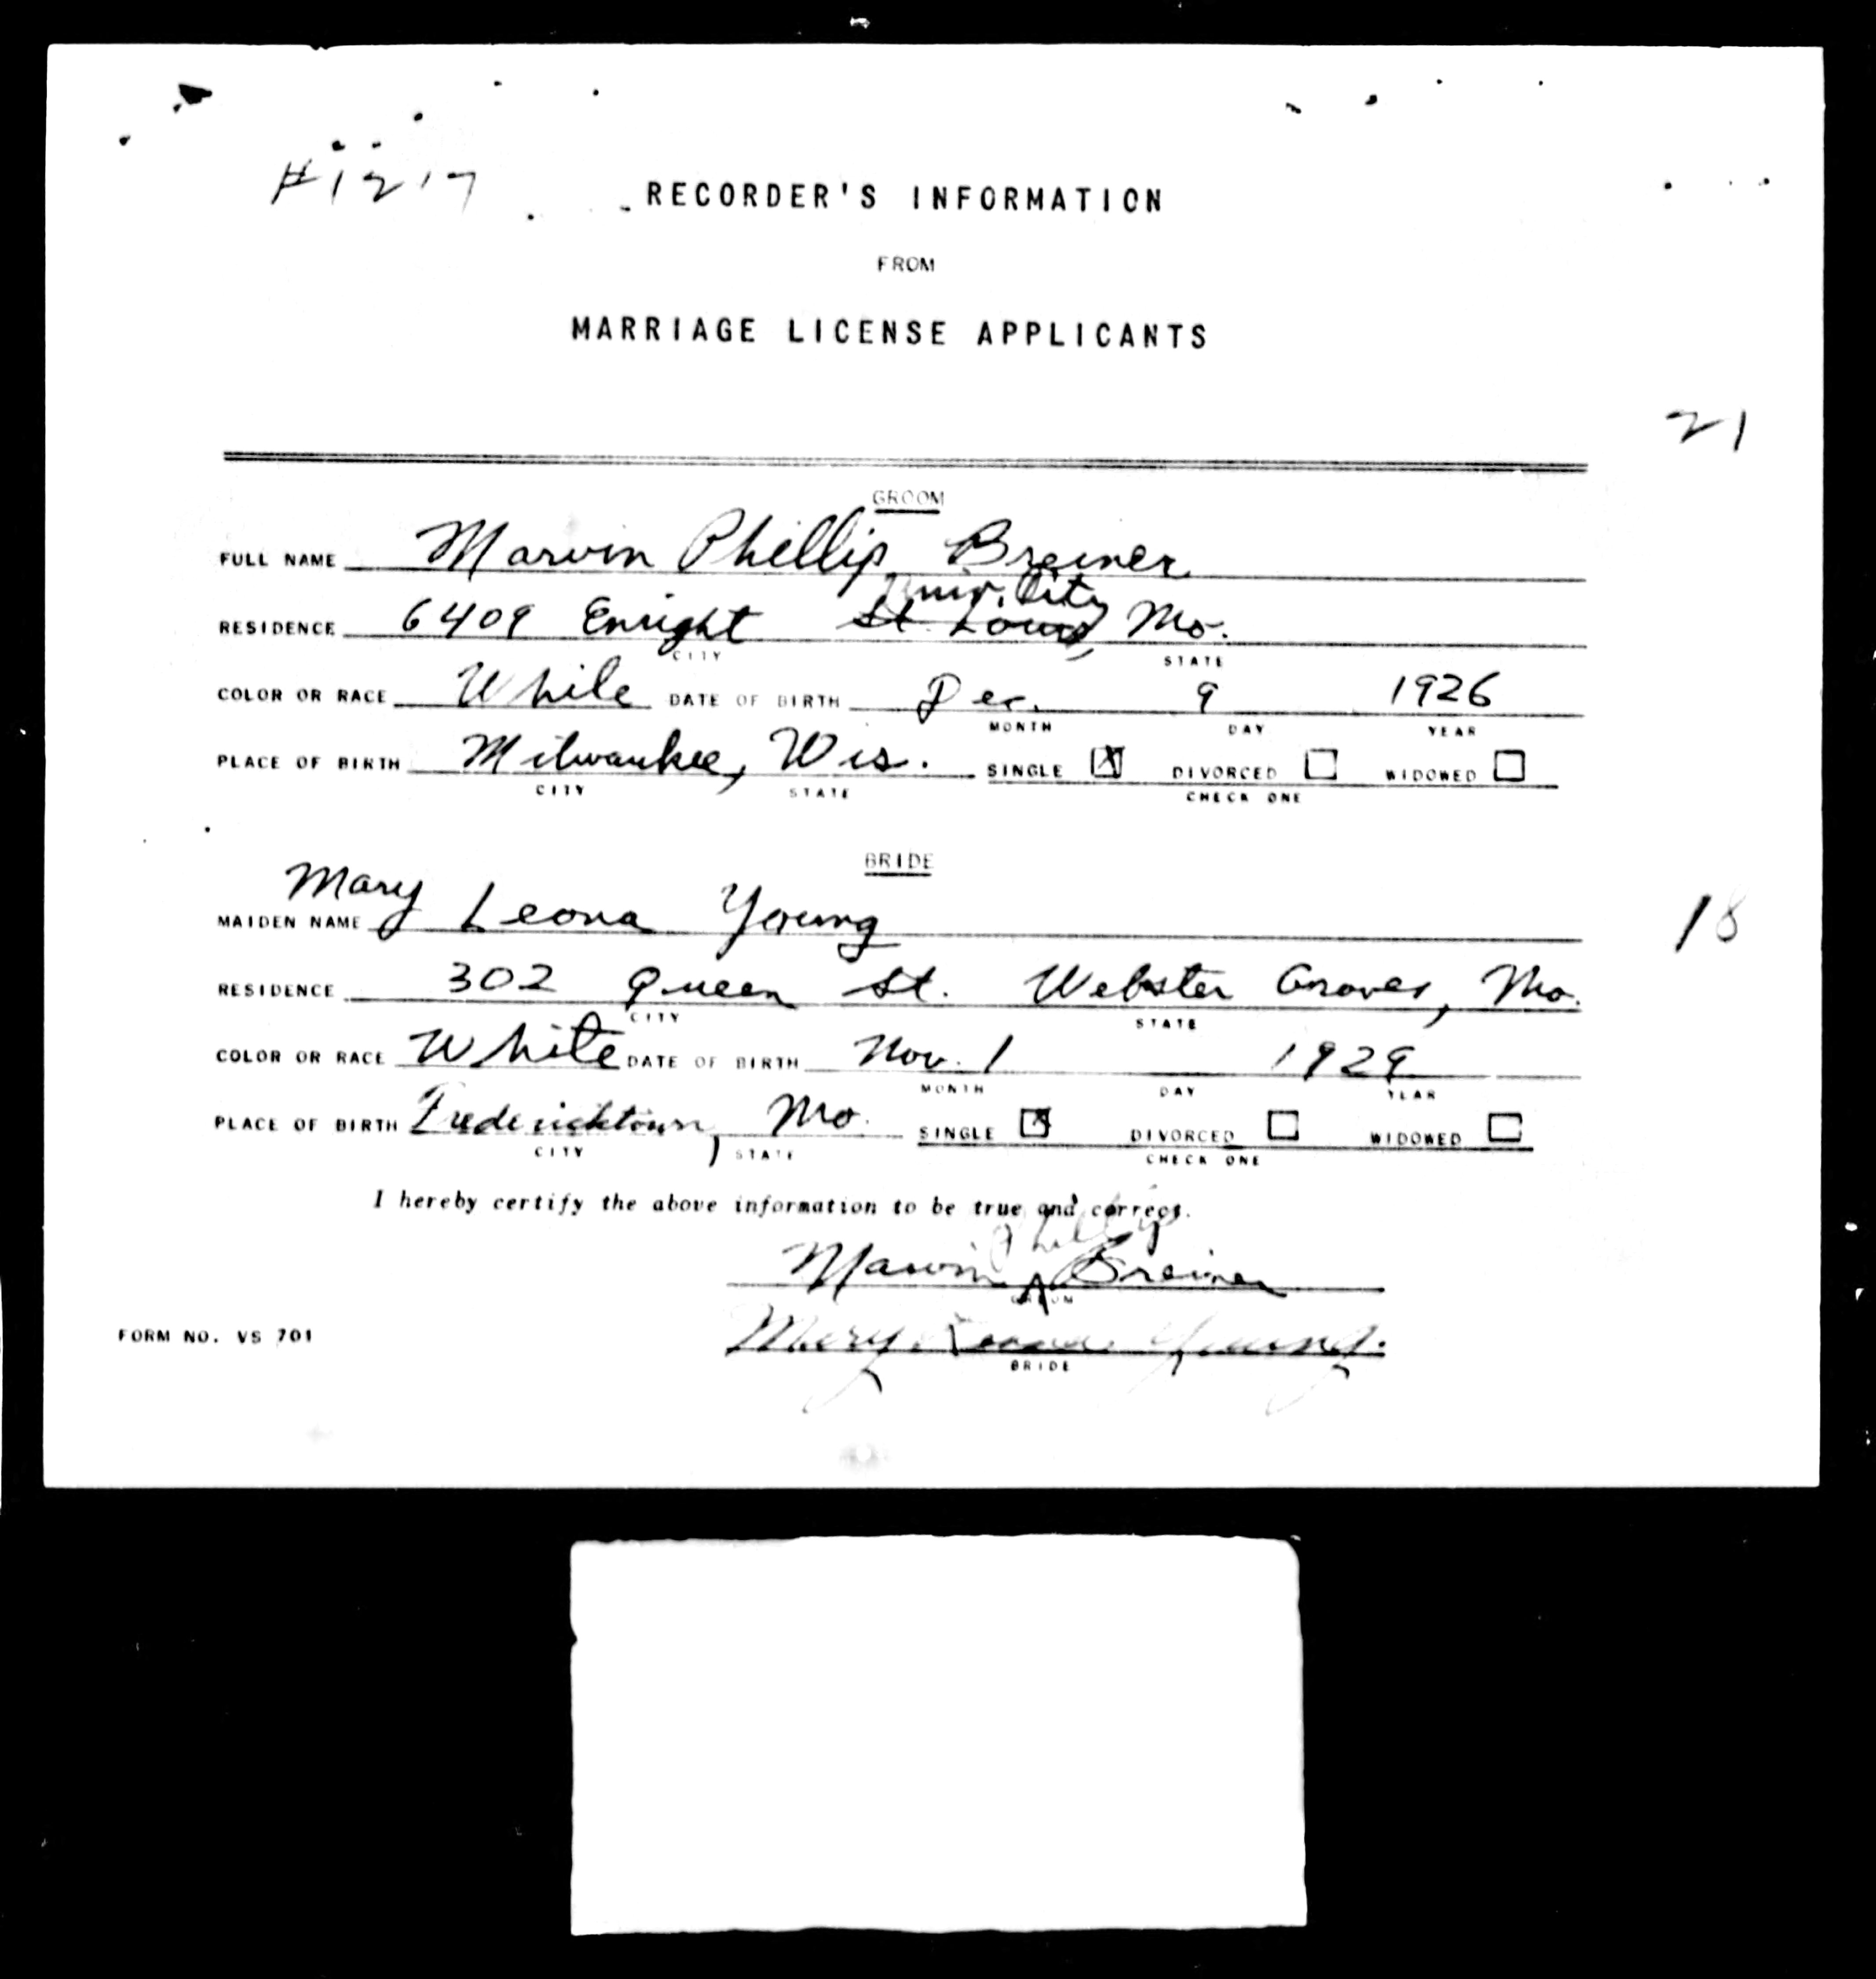 #1217
RECORDER'S INFORMATION
FROM
MARRIAGE LICENSE APPLICANTS
21
GROOM
FULL NAME Marvin Phillip Breiner
Univ. City
RESIDENCE 6409 Enright St Louis, Mo.
CITY STATE
COLOR OR RACE White DATE OF BIRTH Dec. 9 1926
MONTH DAY YEAR
PLACE OF BIRTH Milwaukee, Wis. SINGLE X DIVORCED WIDOWED
CITY STATE CHECK ONE
BRIDE
MAIDEN NAME Mary Leona Young
18
RESIDENCE 302 Queen St. Webster Groves, Mo.
CITY STATE
COLOR OR RACE White DATE OF BIRTH Nov. 1 1929
MONTH DAY YEAR
PLACE OF BIRTH Fredericktown, Mo. SINGLE X DIVORCED WIDOWED
CITY STATE CHECK ONE
I hereby certify the above information to be true and correct.
Phillip
Marvin Breiner
GROOM
Mary Leona Young.
FORM NO. VS 701
BRIDE